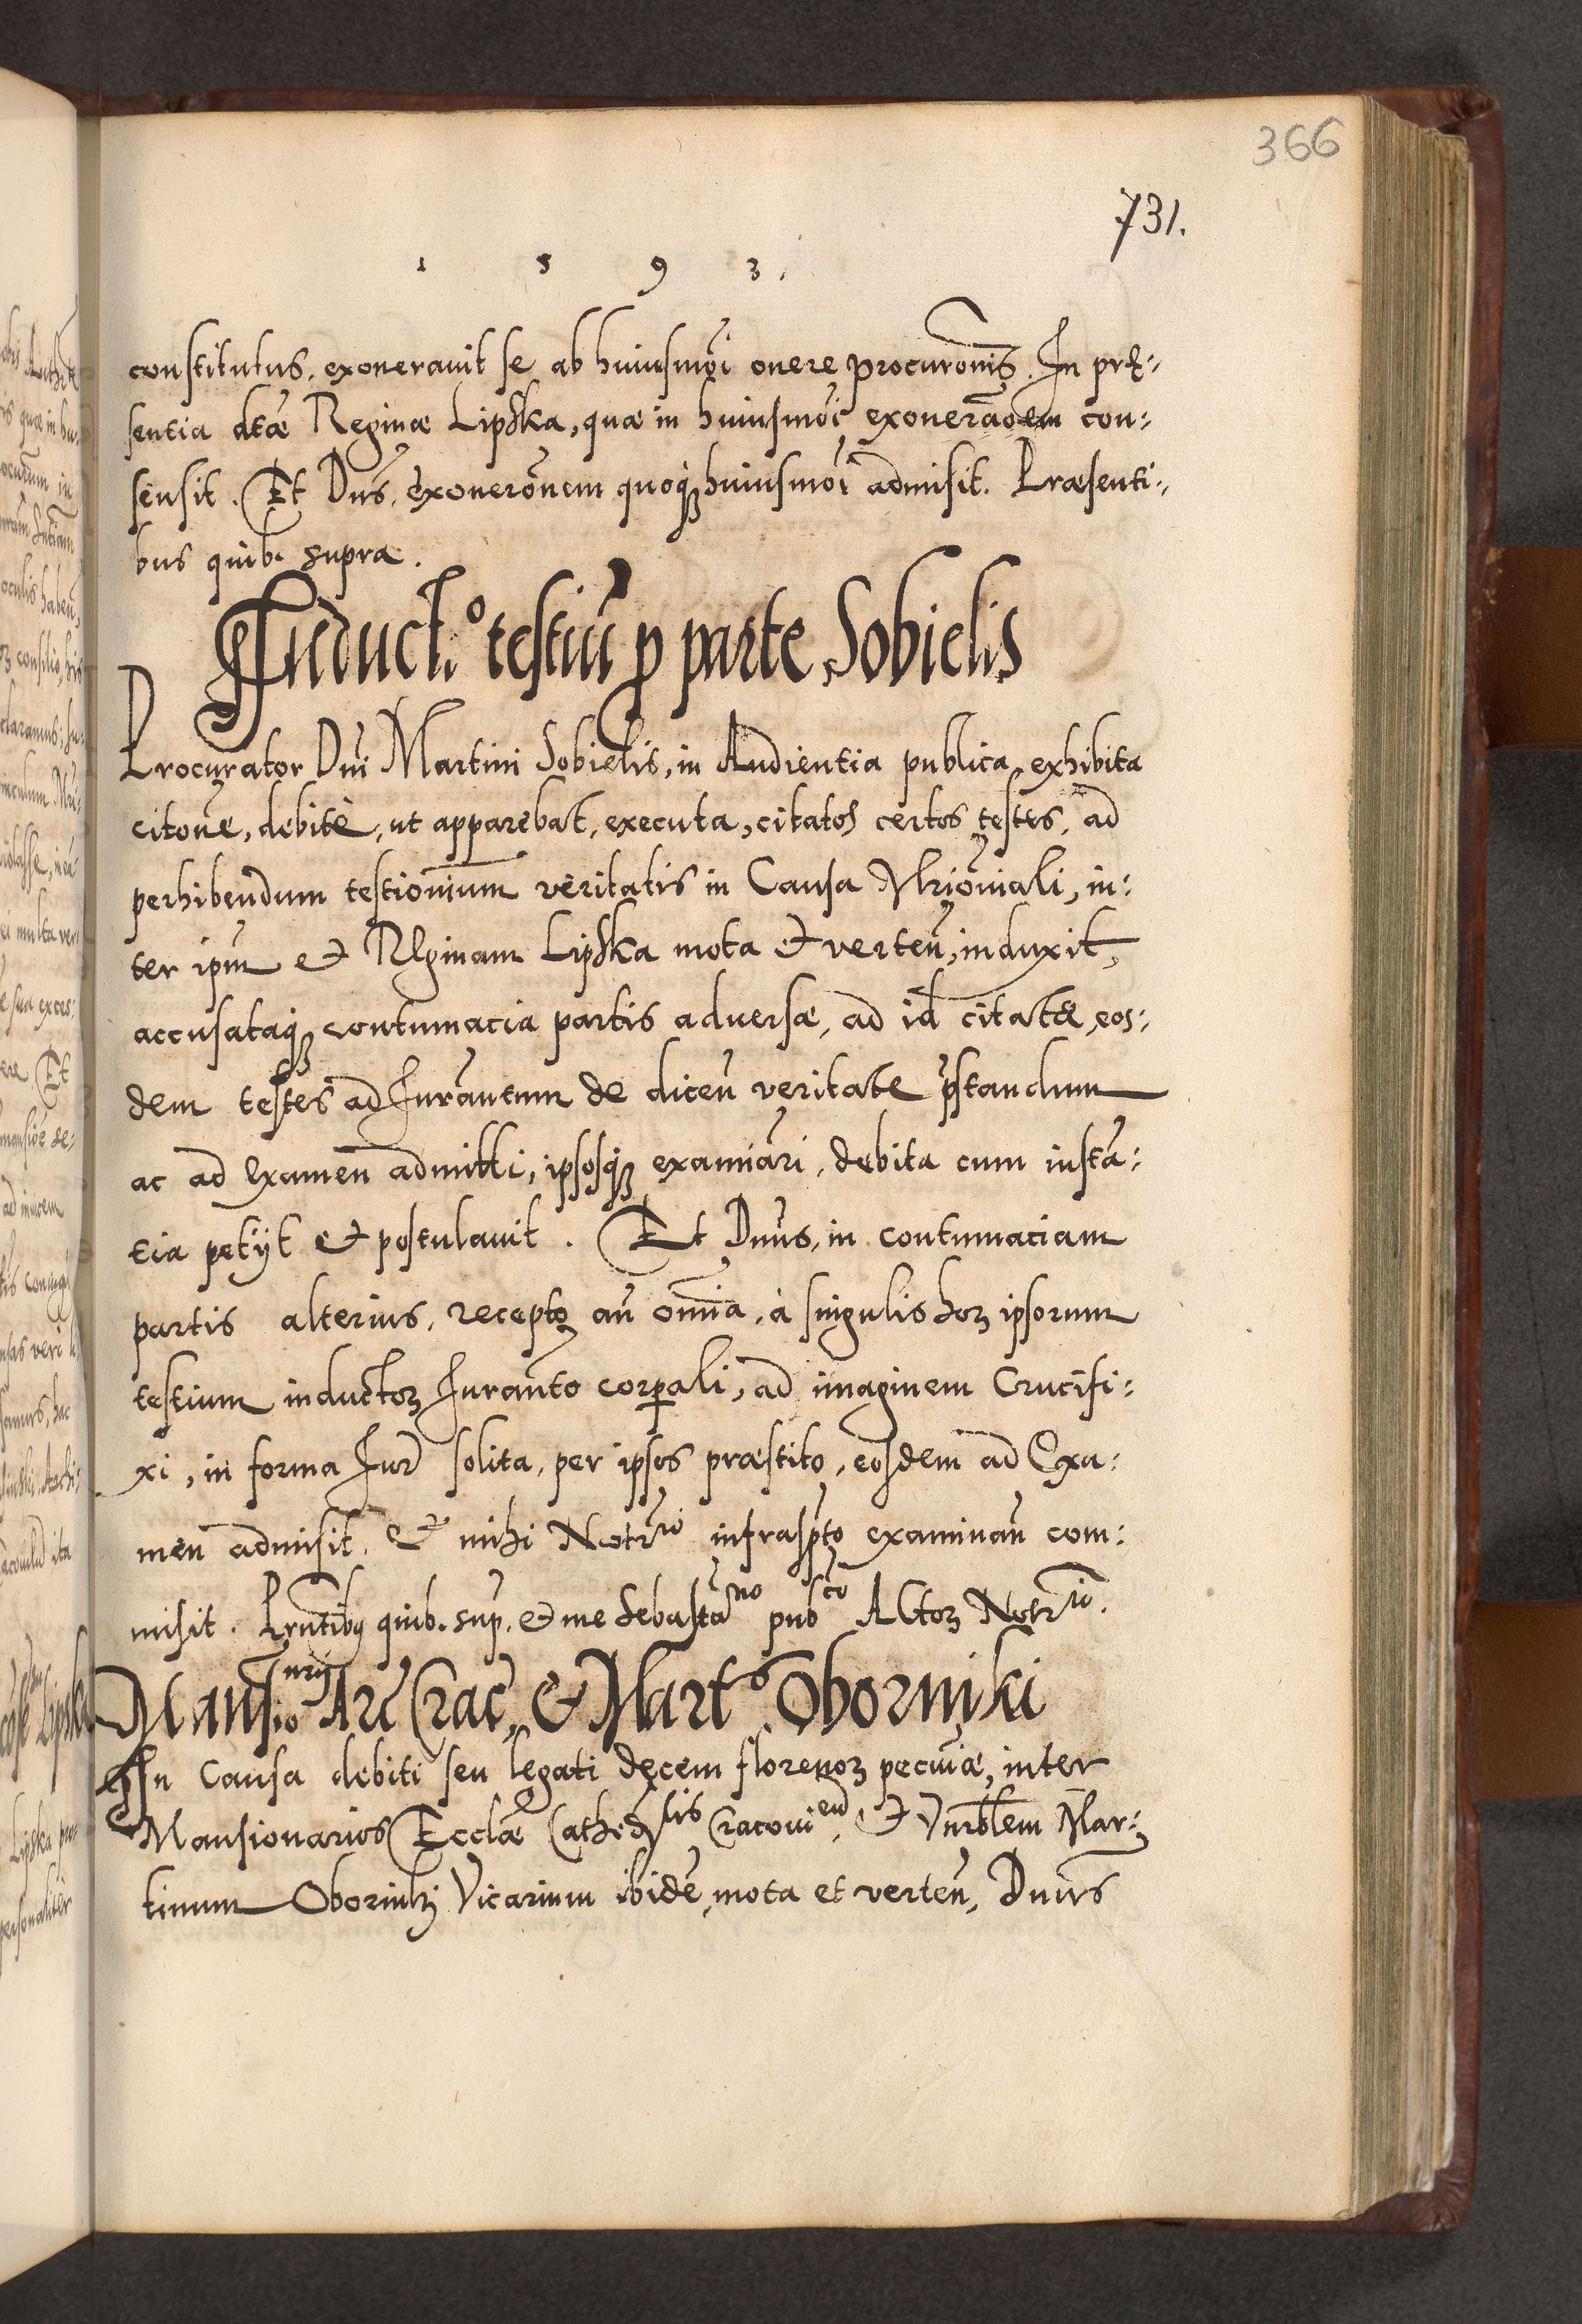 366
731.
1 5 9 3.
constitutus, exoneravit se ab huiusmoi onere procuronis. In præ:
sentia dtæ Reginæ Lipska, quæ in huiusmoi exoneraoem con:
sensit. Et Dns. exoneronem quoqȝ huiusmoi admisit. Præsenti:
bus quib. supra.
Induct.o testiū p parte Sobielis
Procurator Dni Martini Sobielis, in Audientia publica, exhibita
citone, debitè, ut apparebat, executa, citatos certos testes, ad
perhibendum testionium veritatis in Causa Mrioniali, in:
ter ipm et Reginam Lipska mota et verten, induxit,
accusataqȝ contumacia partis adversæ, ad id citatæ, eos:
dem testes ad Iurantum de dicen veritate pstandum
ac ad Examen admitti, ipsosqȝ examinari, debita cum instā:
tia petijt et postulavit. Et Dnus, in contumaciam
partis alterius, recepto an omnia, à singulis hoȝ ipsorum
testium inductoȝ Iuranto corporali, ad imaginem Crucifi:
xi, in forma Iur solita, per ipsos præstito, eosdem ad Exa:
men admisit. et mihi Notrio infraspto examinan com:
misit. Pruntibꝫ quib. sup. et me Sebastano pubco Actoȝ Notrio.
Mansionarij Arc Crac, et Mart.o Oborniki
In Causa debiti seu legati decem florenoȝ pecuiæ, inter
Mansionarios Ecclæ Cathedlis Cracovien, et Vnrblem Mar:
tinum Oborinski Vicarium ibidē, mota et verten, Dnus